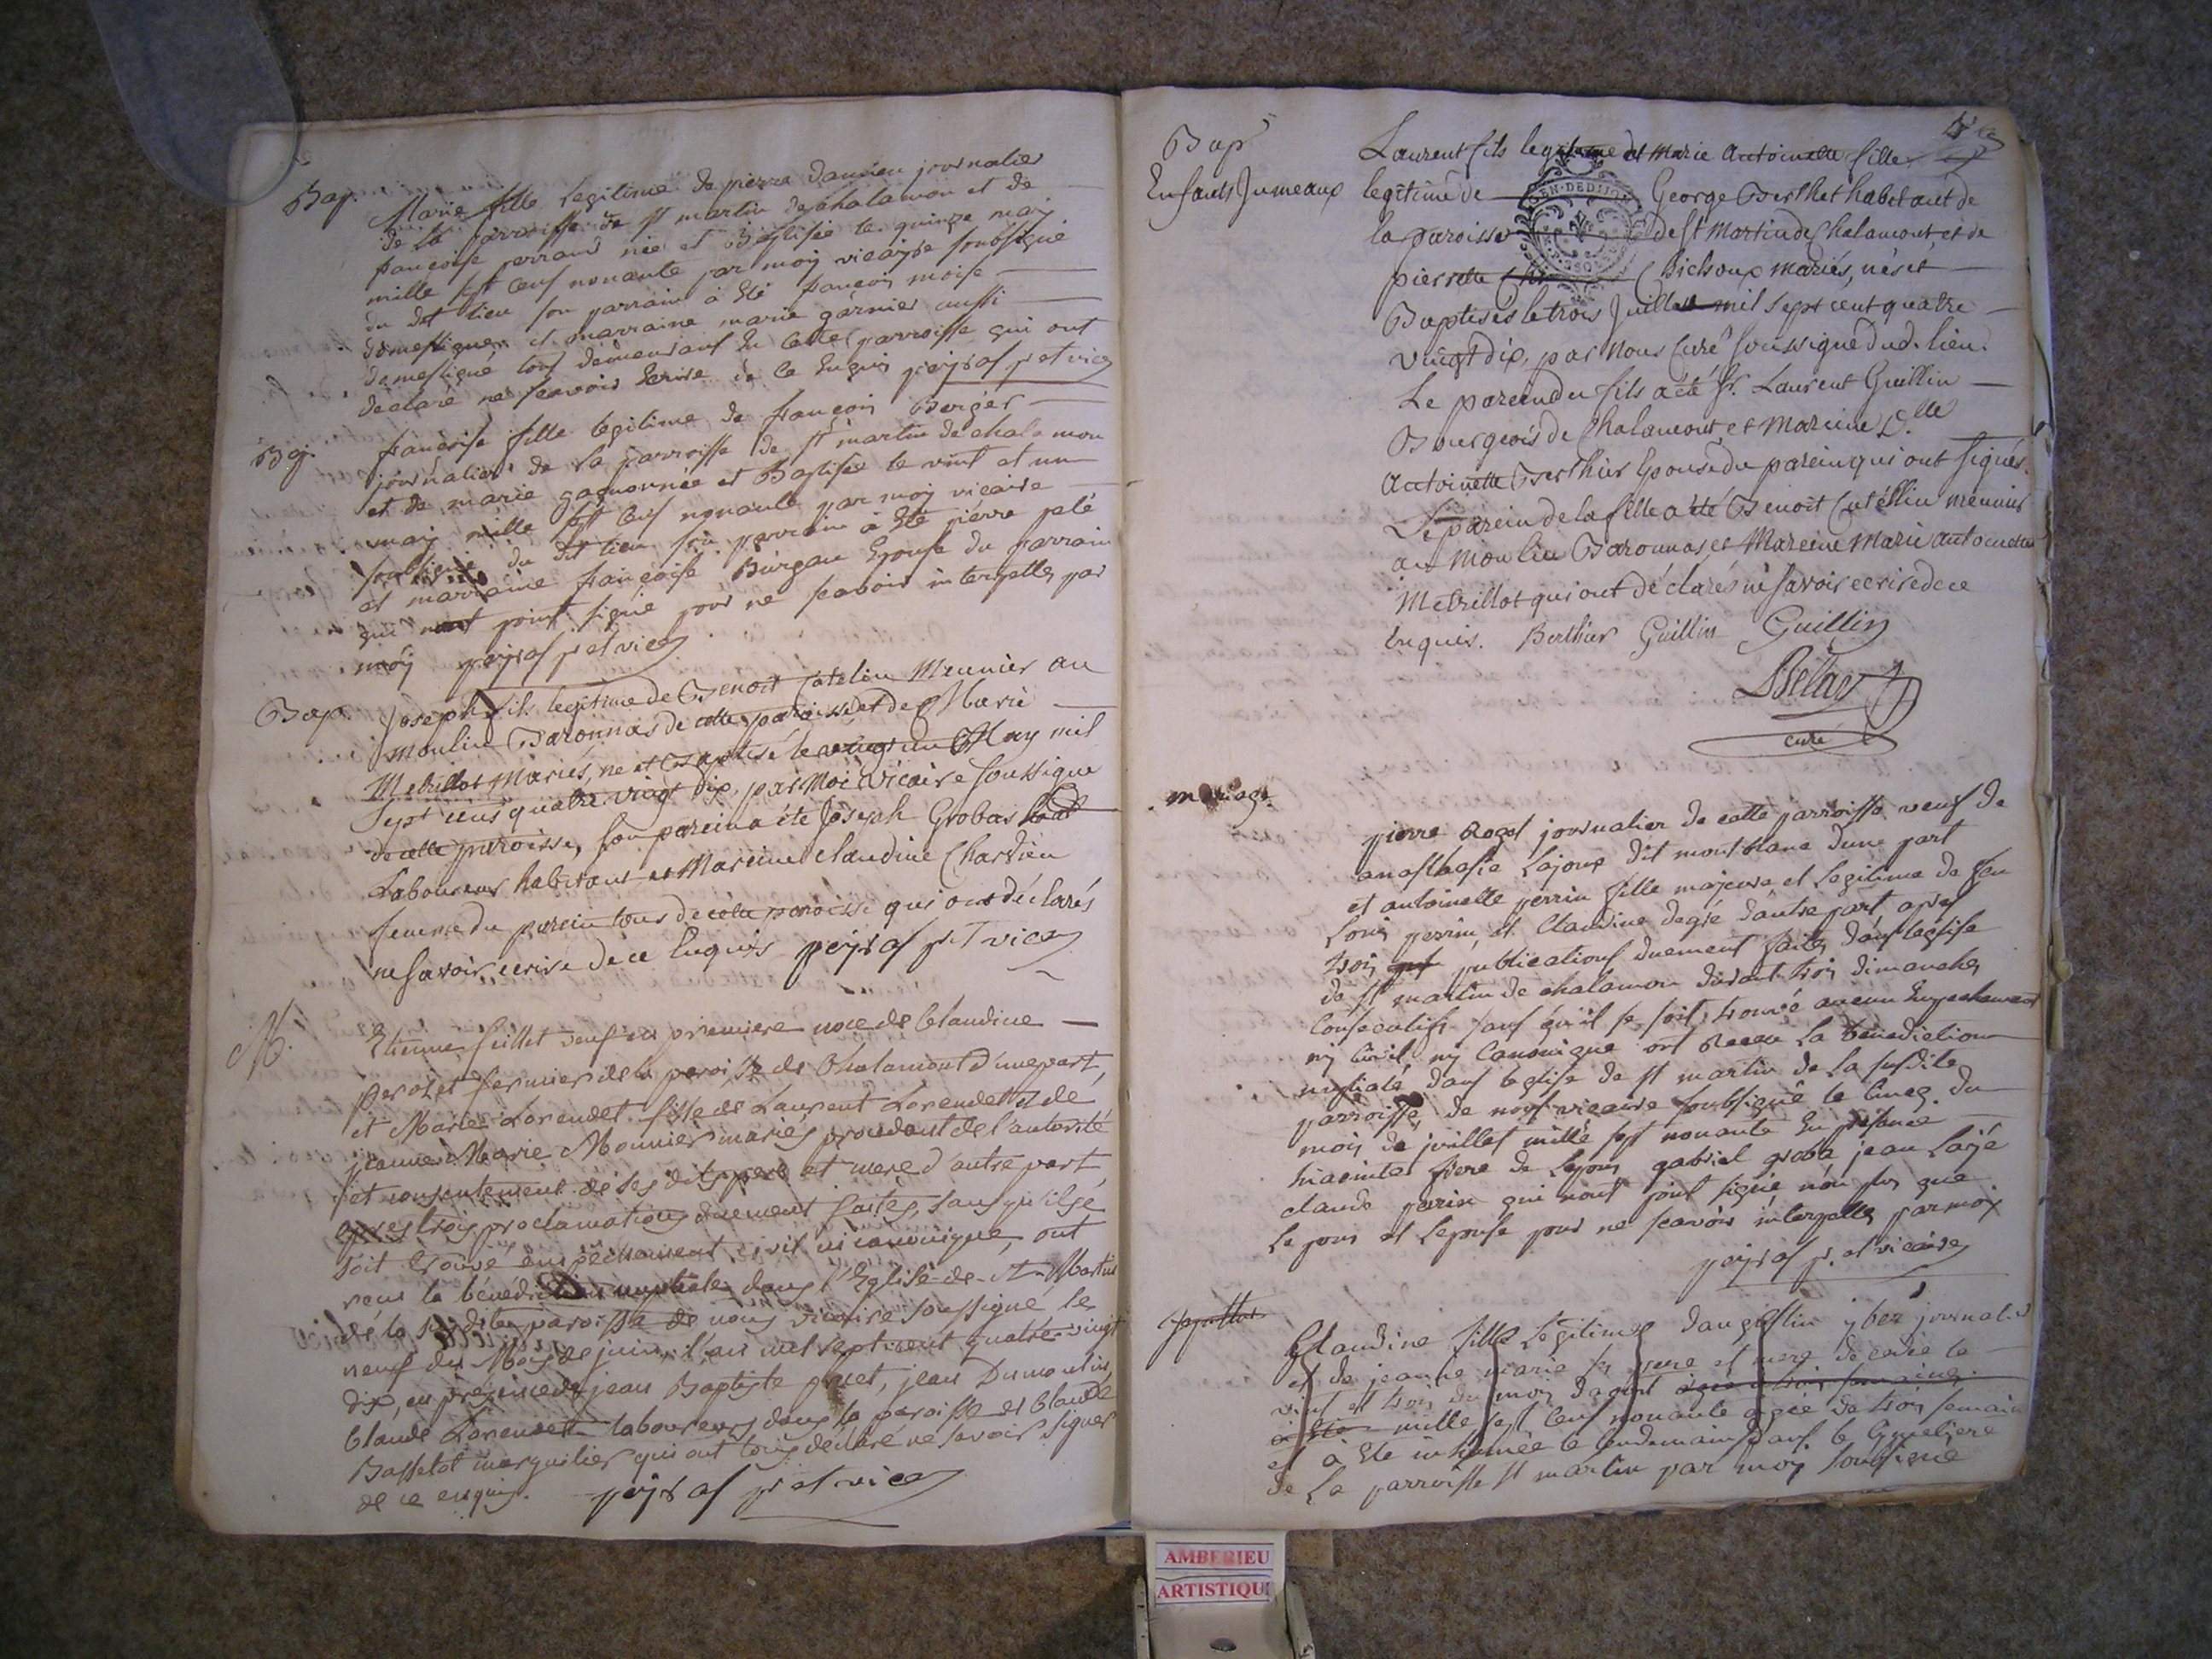 Bap.
Marie fille legitime de pierre damien journalier
de la parroisse de st martin de chalamon et de
françoise perrand née et Baptisée le quinze may
mille sept cens nonante par moy vicaire soubsigné
du dit lieu son parrain à eté françois moise
domestique et marraine marie garnier aussi
domestique tous demeurant en cette parroisse qui ont
declaré ne scavoir ecrire de ce enquis peyraf p et vic
Bap.
françoise fille legitime de françois Berger
journalier de la parroisse de st martin de chalamon
et de marie gagnonnée et Baptisée le vint et un
may mille sept cens nonante par moy vicaire
soubsigné du dit lieu son parrain à eté pierre palé
et marraine françoise Burgau epouse du parrain
qui nont point signé pour ne scavoir interpellés par
moy peyraf p et vic
Bap.
Joseph fils legitime de Benoit Catelin Meunier au
moulin Baronnas de cette paroisse et de Marie
Metrillot Mariés, né et Baptisé le vingt un May mil
Sept cens quatre vingt dix, par Moi Vicaire soussigné
de cette paroisse, son parein a été Joseph Grobas
Laboureur habitant et Mareine claudine Chardien
femme du parein tous de cette paroisse qui ont déclarés
ne savoir ecrire de ce Enquis peyraf p et vic
M.
Etienne feillet veuf en premiere noce de Claudine
perozet fermier de la paroisse de Chalamont d'une part,
et Marie Lorendet fille de Laurent Lorendet et de
jeanne Marie Monnier mariés procedant de l'autorité
et consentement de ses dits pere et mere d'autre part
apres trois proclamations duement faites, sans qu'il se
soit trouvé empêchement civil ni canonique, ont
recu la bénédiction nuptiale dans l'Eglise de st Martin
de la susdite paroisse de nous vicaire soussigné le
neuf du Mois de juin, l'an mil sept cent quatre vingt
dix, en présence de jean Baptiste jean Dumoulin,
Claude Lorendet laboureurs dans la paroisse et Claude
Bassetot marguilier qui ont tous déclaré ne savoir signer
de ce enquis. peyraf p et vic
Bap
Laurent fils legitime et Marie Antoinette fille
Enfants Jumeaux
legitime de George Berthet habitant de
la paroisse de St Martin de Chalamont, et de
pierrette Bichoux mariés, nés et
Baptisés le trois Juillet mil sept cent quatre
vingt dix, par Nous Curé soussigné dud. lieu.
Le parein du fils a été Sr. Laurent Guillin
Bourgeois de Chalamont, et Mareine Dlle
Antoinette Berthier Epouse du parein qui ont signés.
Le parein de la fille a été Benoit Catellin meunier
au Moulin Baronnas et Mareine Marie Antoinette
Metrillot qui ont déclarés ne savoir ecrire de ce
Enquis. Berthier Guillin Guillin
curé
mariage.
pierre Roget journalier de cette parroisse veuf de
anasthasie Lajoux dit montblanc dune part
et antoinette perrin fille majeure et legitime de feu
Louis perrin et Claudine degré dautre part apres
trois publications duement faites dans leglise
de st martin de chalamon durant trois dimanches
consecutifs sans quil se soit trouvé aucun Empechement
ny Civil ny Canonique ont Receu La benediction
nuptiale dans leglise de st martin de La susdite
parroisse de nous vicaire soubsigné le cinq du
mois de juillet mille sept nonante En presence
frere de lepoux gabriel groba jean
claude perrin qui nont point signé non plus que
Lepoux et lepouse pour ne scavoir interpellés par moy
peyraf p. et vicaire
Claudine fille Legitime daugustin journalier
et de jeanne marie ses pere et mere decedée le
vint et trois du mois daoust agée de trois semaines
a eté mille sept cens nonante agée de trois semaines
et à eté inhumée le lendemain dans le Cymetiere
de La parroisse st martin par moy soubsigné
AMBERIEU
ARTISTIQU